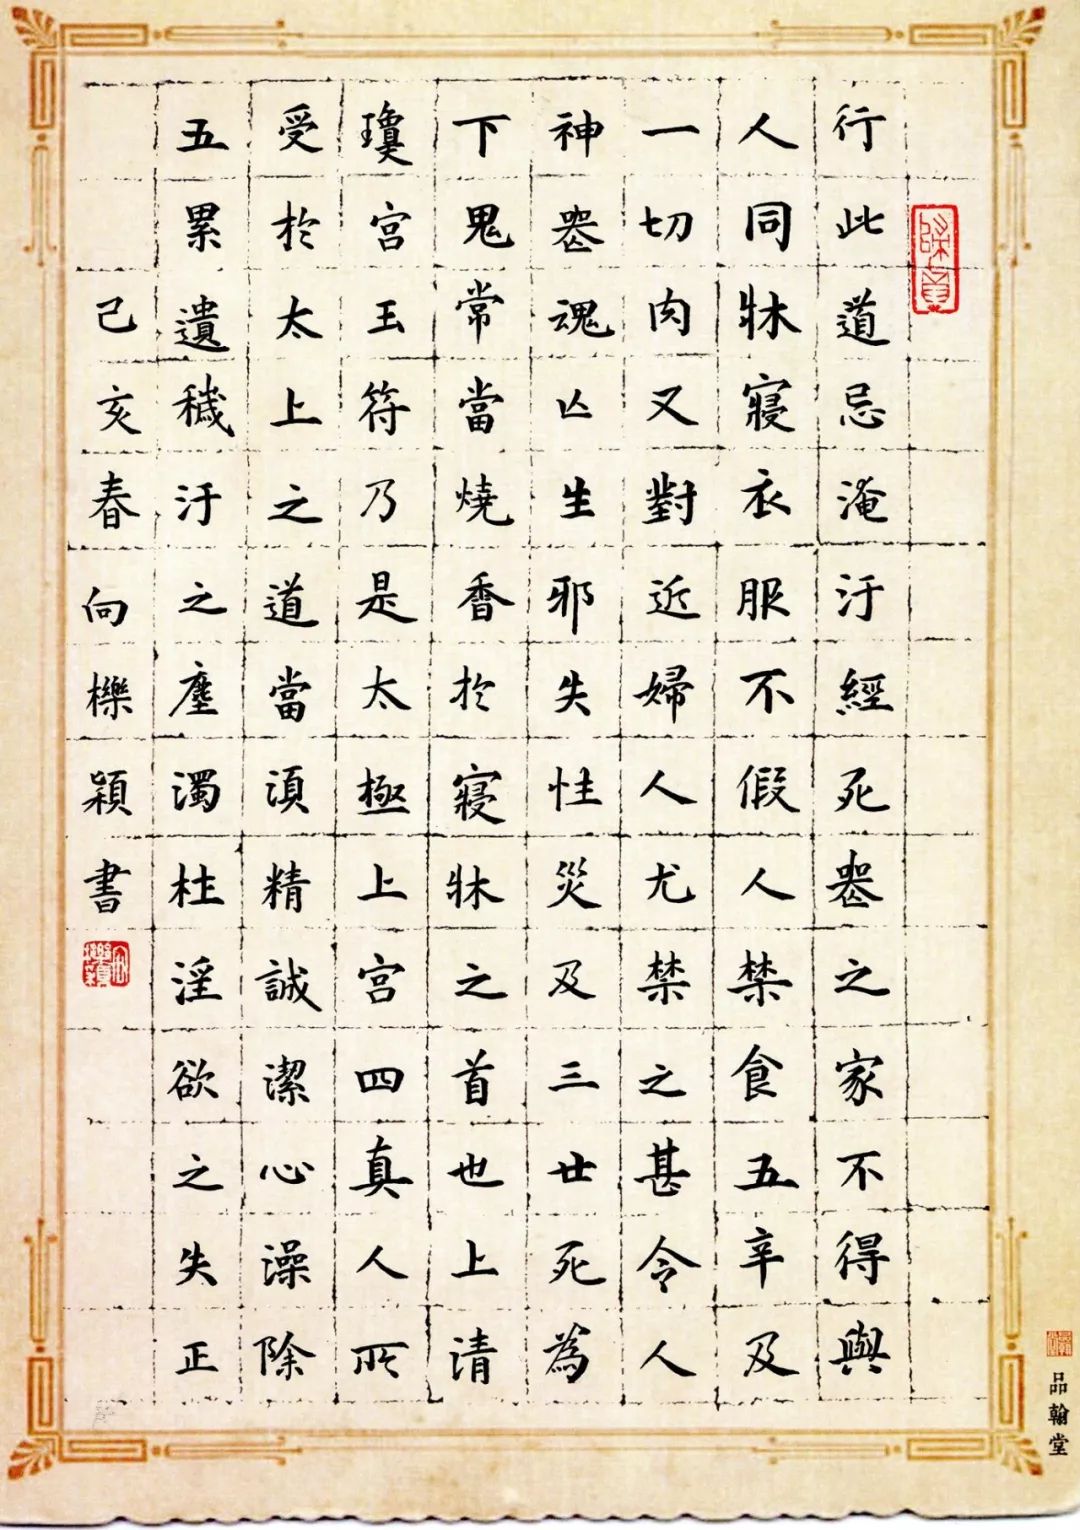 行此道忌淹汙經死喪之家不得與
人同牀寢衣服不假人禁食五辛及
一切肉又對近婦人尤禁之甚令人
神喪魂亡生邪失性災及三世死為
下鬼常當燒香於寢牀之首也上清
瓊宮玉符乃是太極上宮四真人所
受於太上之道當須精誠潔心澡除
五累遺穢汙之塵濁杜淫欲之失正
己亥春向櫟穎書
品翰堂